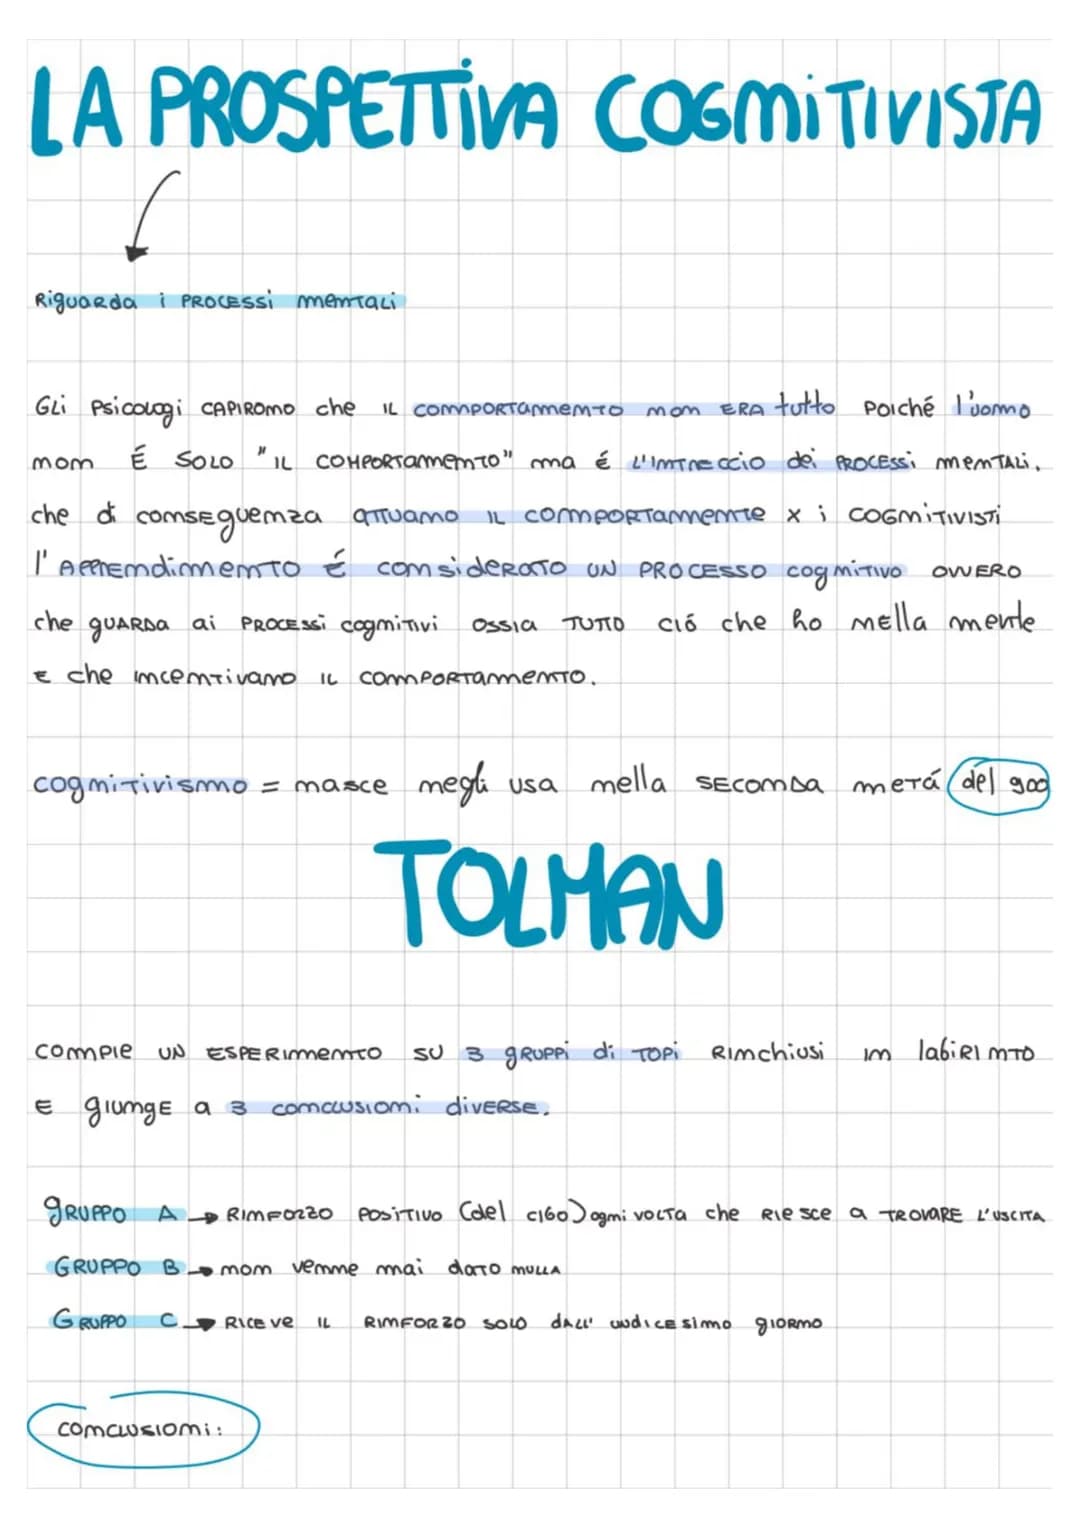 LA PROSPETTIVA COGNITIVISTA
Riguarda i PROCESSI mentali
Gli Psicologi CAPIRONO che IL COMPORTAMENTO non ERA tutto Poiché l'uomo
non É SOLO "IL COMPORTAMENTO" ma é L'INTRECCIO dei PROCESSI MENTALI,
che di conseguenza ATTUANO IL COMPORTAMENTE x i COGNITIVISTI
l'APPRENDIMENTO É CONSIDERATO UN PROCESSO cognitivo OVVERO
che GUARDA ai PROCESSI cognitivi OSSIA TUTTO ció che ho NELLA mente
E che incentivano IL COMPORTAMENTO.
cognitivismo = nasce negli usa nella SECONDA metá del 900
TOLMAN
COMPIE UN ESPERIMENTO SU 3 GRUPPI di TOPI RINCHIUSI IN labiRINTO
E giunge a 3 conclusioni diverse.
GRUPPO A → RINFORZO POSITIVO (del CIBO) ogni VOLTA che RIESCE a TROVARE L'USCITA
GRUPPO B → non venne mai dato NULLA
GRUPPO C → RICEVE IL RINFORZO SOLO dALL' undicesimo giorno
conclusioni: